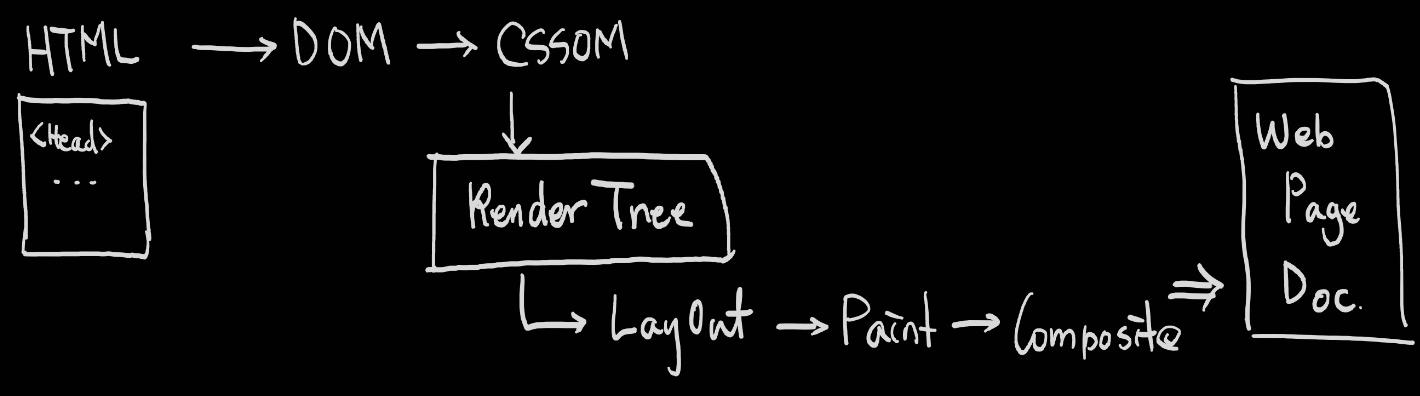 HTML → DOM → CSSOM
<Head>
...
Render Tree
LayOut → Paint → Composite ⇒
Web
Page
Doc.